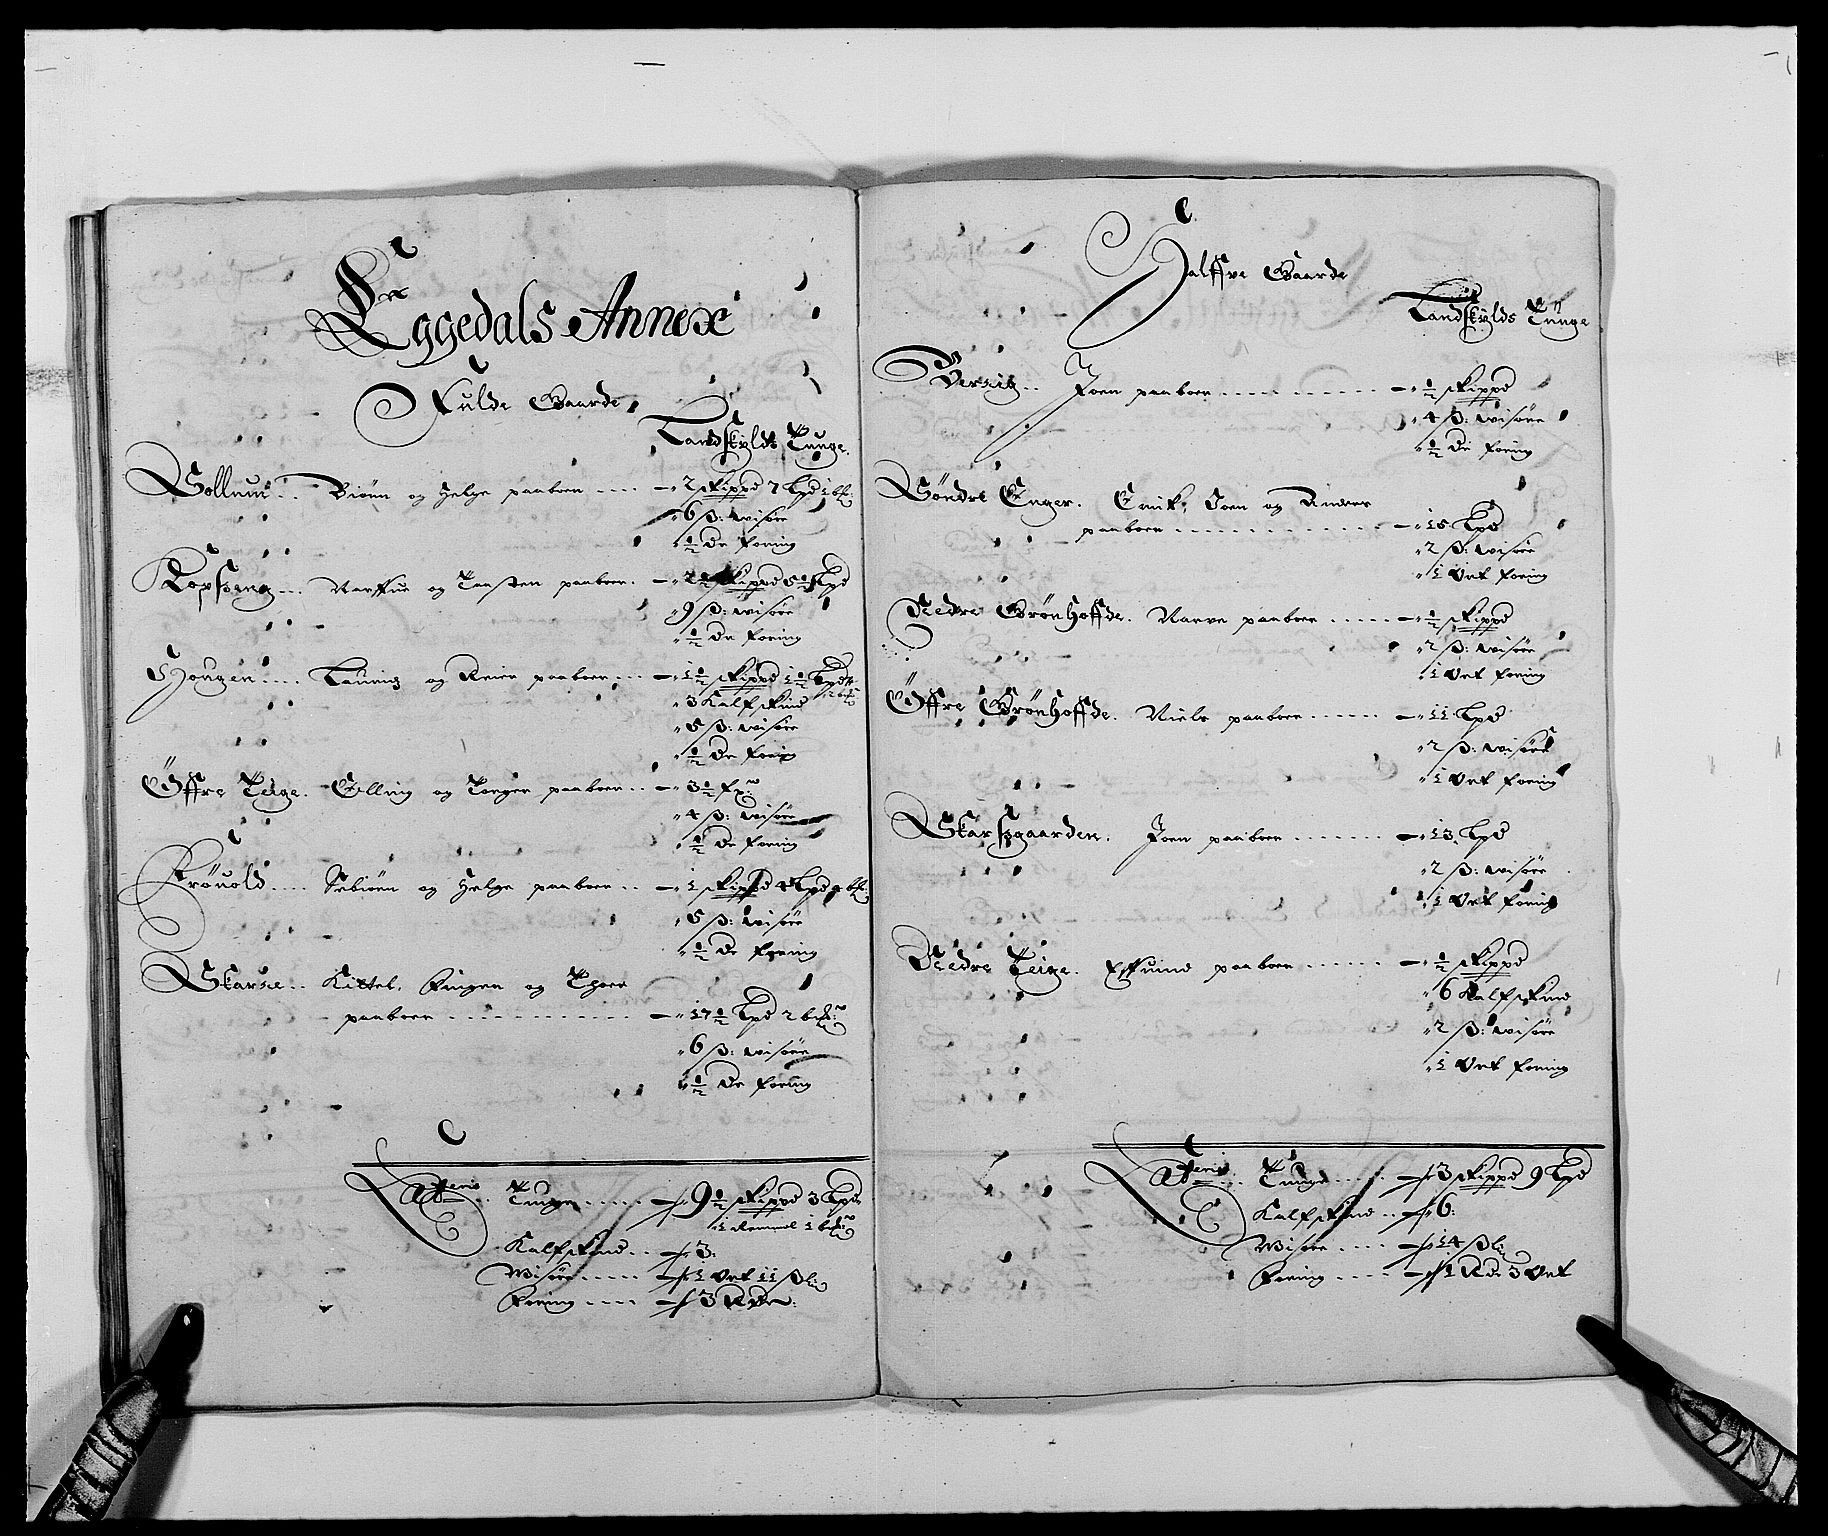 Eggedals Annex
Fulde Gaarde
Landskylds Tunge.
Gollnm.. Biörn og Helge paaboer .... 2 skippd 7 Lpd
6 ß: wisöre
½ dr foring
Kopseng... og Torsten paaboer. 2½ skippd 5½ Lpd
9 ß: wisöre
½ dr foring
Hougen.... Lauritz og Reier paaboer... 1½ skippd 1½ Lpd
3 Kalfskind
5 ß: wisöre
½ dr foring
Öffre Teige. Elling og Torger paaboer.. 3½
4 ß: wisöre
½ dr foring
Fröuold.... og Helge paaboer.. 1 skippd 4 Lpd
5 ß: wisöre
½ dr foring
Skarre.. Kittel, Fingar og Thore
paaboer ............ 17½ Lpd 2
6 ß: wisöre
½ dr foring
Lateris.. Tunge..... 9½ skippd 3 Lpd
1 Remmel 1
Kalfskind.. 3:
Wisöre..... 1 Ort 11 ß
Foring .... 3 Rdr:
Halffve Gaarde
Landskylds Tunge
Joen paaboer ............ ½ skippd
4 ß: wisöre
½ dr foring
Söndre Enger. Erich, Joen og Anders
paaboer .............. 15 Lpd
2 ß: wisöre
1 Ort foring
Nedre Grönhoffde. Narve paaboer ..... ½ skippd
2 ß: wisöre
1 Ort foring
Öffre Grönhoffde. Niels paaboer ...... 11 Lpd
2 ß: wisöre
1 Ort foring
Skarsgaarden. Joen paaboer ....... 13 Lpd
2 ß: wisöre
1 Ort foring
Nedre Teige. paaboer ...... ½ skippd
6 Kalfskind
2 ß: wisöre
1 Ort foring
Lateris. Tunge..... 3 skippd 9 Lpd
Kalfskind.. 6:
Wisöre.... 14 ß
Foring .... 1 Rdr 3 Ort